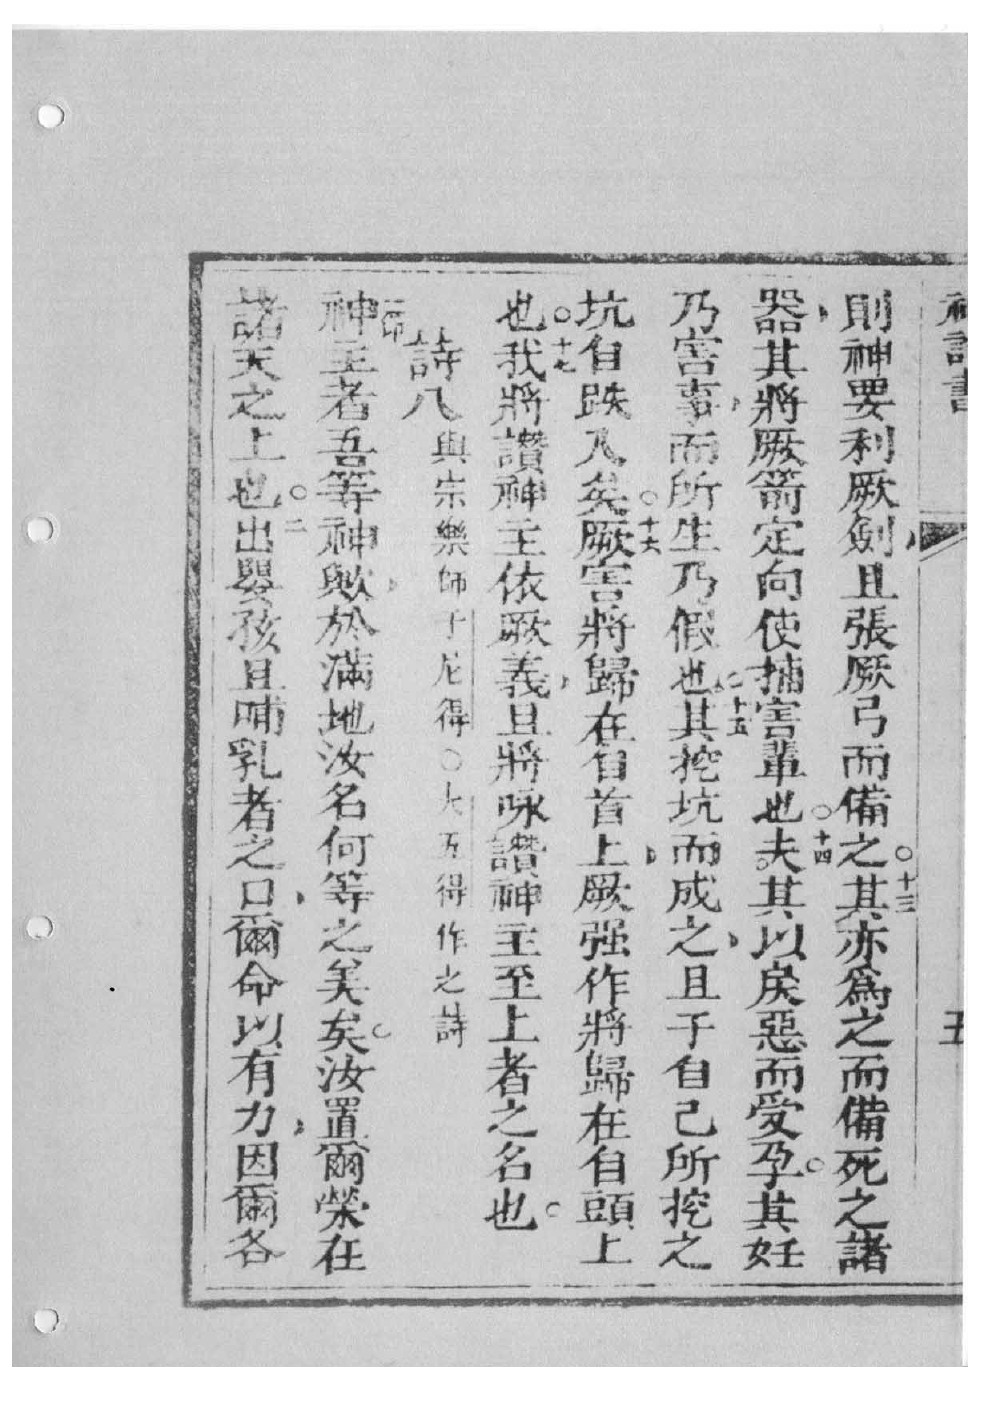 神詩書 五
則神要利厥劍、且張厥弓而備之。十三其亦爲之而備死之諸
器、其將厥箭定向使捕害輩也。十四夫其以戾惡而受孕。其妊
乃害事、而所生乃假也。十五其挖坑而成之、且于自己所挖之
坑自跌入矣。十六厥害將歸在自首上、厥强作將歸在自頭上
也。十七我將讚神主依厥義、且將咏讚神主至上者之名也。
詩八 與宗樂師于尼得○大五得作之詩
一節神主者吾等神歟、於滿地汝名何等之美矣。汝置爾榮在
諸天之上也。二出嬰孩且哺乳者之口、爾命以有力、因爾各